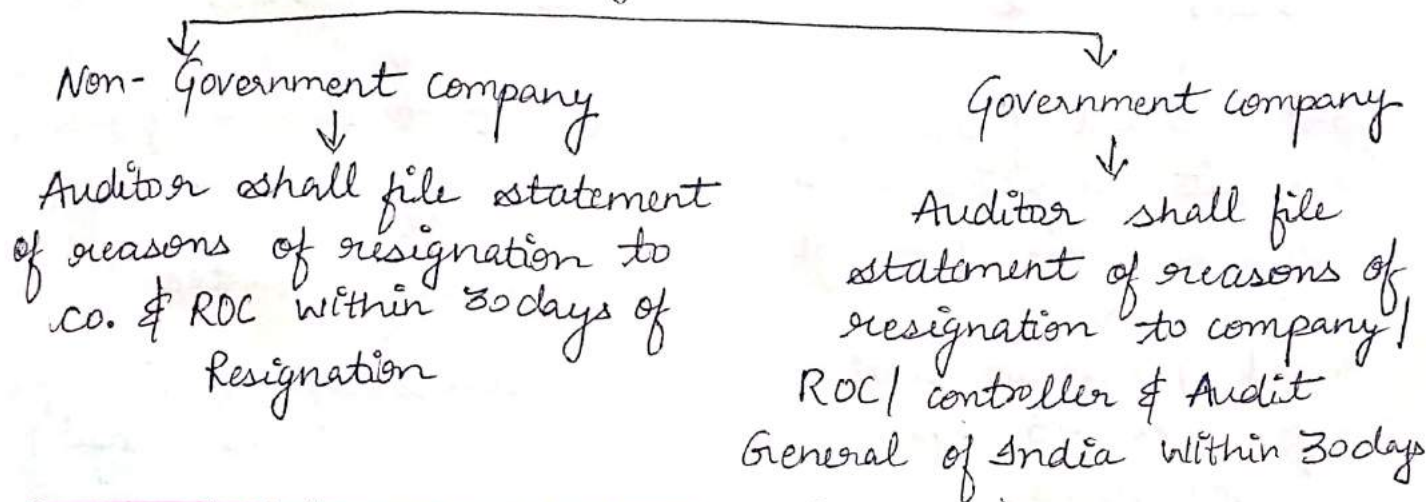 Non- Government company
↓
Auditor shall file statement
of reasons of resignation to
co. & ROC within 30 days of
Resignation
Government company
↓
Auditor shall file
statement of reasons of
resignation to company/
ROC/ controller & Audit
General of India within 30 days